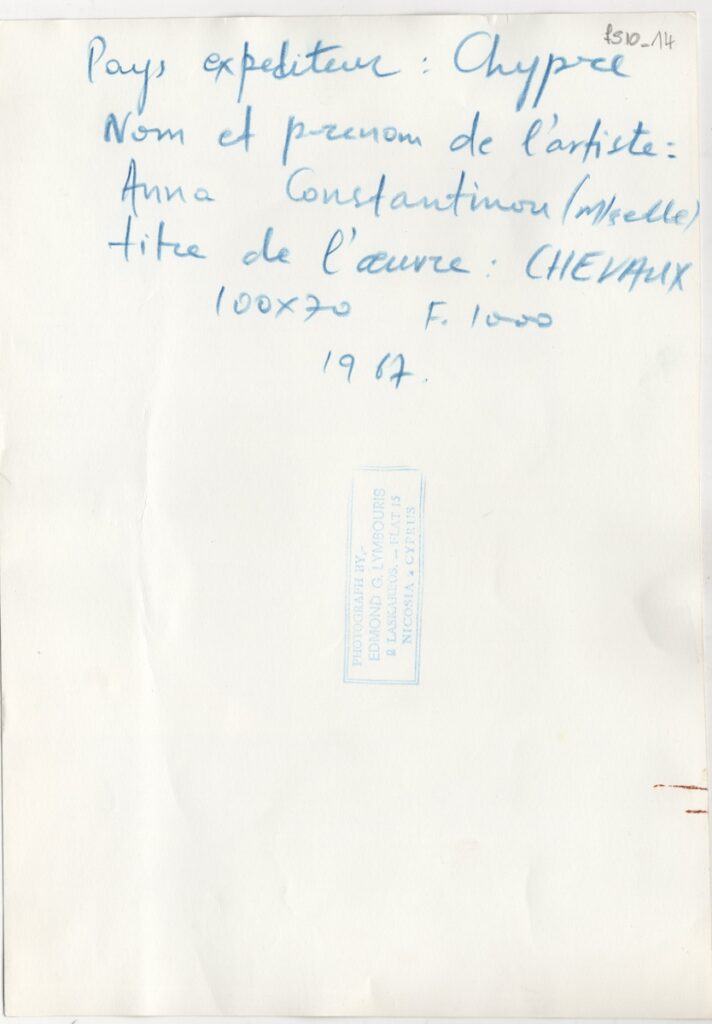 Pays expediteur : Chypre
Nom et prenom de l'artiste :
Anna Constantinou (M/selle)
titre de l'œuvre : CHEVAUX
100x70 F. 1000
1967.
PHOTOGRAPH BY,-
EDMOND G. LYMBOURIS
LASKAREOS. — FLAT 15
NICOSIA CYPRUS